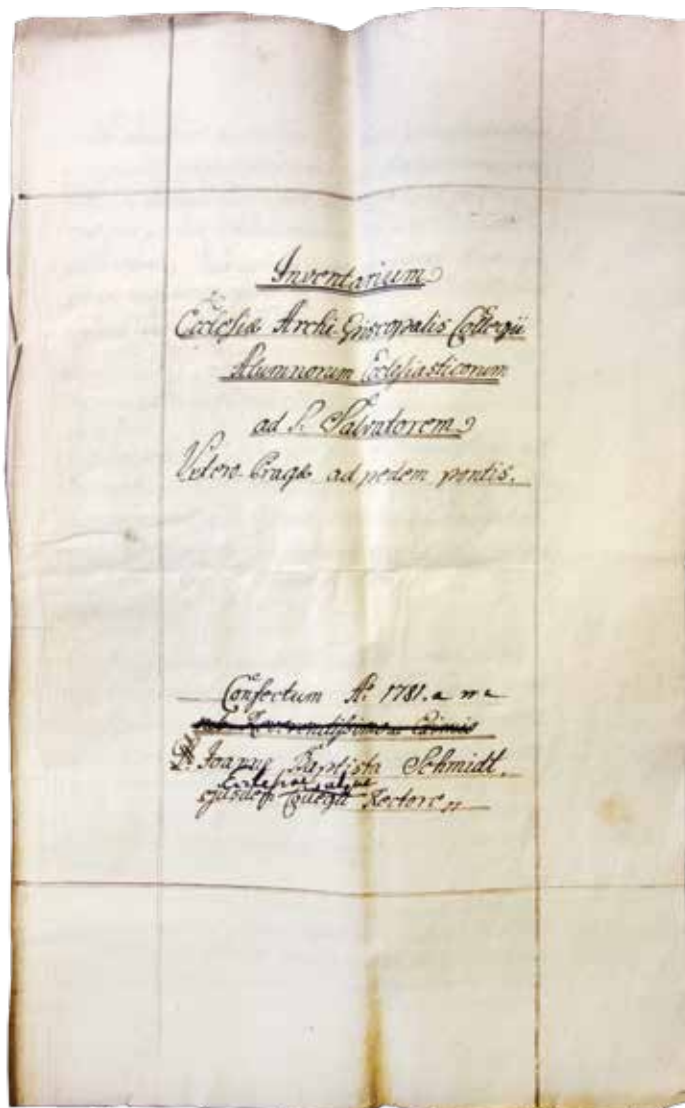 Inventarium
Ecclesiæ Archi Episcopalis Collegii
Alumnorum Ecclesiasticorum
ad S. Salvatorem
Vetero-Pragæ ad pedem pontis.
Confectum Aº 1781. a me
sub Reverendissimo
Joanne Baptista Schmidt.
Ecclesiae atque
ejusdem Collegii Rectore